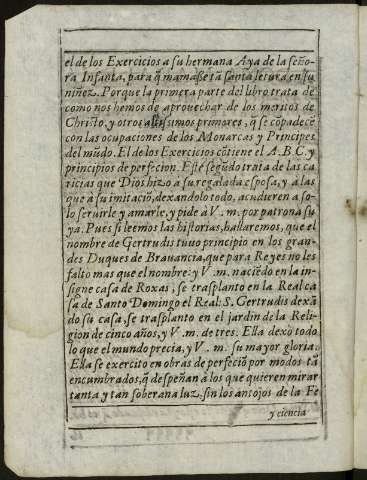 el de los Exercicios a su hermana Aya de la seño-
ra Infanta, para q̃ mamasse tã santa letura en su
niñez. Porque la primera parte del libro trata de
como nos hemos de aprovechar de los meritos de
Christo, y otros altissimos primores, q̃ se cõpadecẽ
con las ocupaciones de los Monarcas y Principes
del mũdo. El de los Exercicios cõtiene el A.B.C. y
principios de perfecion. Este segũdo trata de las ca
ricias que Dios hizo a su regalada esposa, y a las
que a su imitaciõ, dexandolo todo, acudieren a so-
lo servirle y amarle, y pide à V. m. por patrona su
ya. Pues si leemos las historias, hallaremos, que el
nombre de Gertrudis tuvo principio en los gran-
des Duques de Bravancia, que para Reyes no les
falto mas que el nombre: y V. m. naciẽdo en la in-
signe casa de Roxas, se trasplanto en la Real ca
sa de Santo Domingo el Real: S. Gertrudis dexã
do su casa, se trasplanto en el jardin de la Reli-
gion de cinco años, y V. m. de tres. Ella dexo todo
lo que el mundo precia, y V. m. su mayor gloria.
Ella se exercito en obras de perfeciõ por modos tã
encumbrados, q̃ despeñan a los que quieren mirar
tanta y tan soberana luz, sin los antojos de la Fe
y ciencia